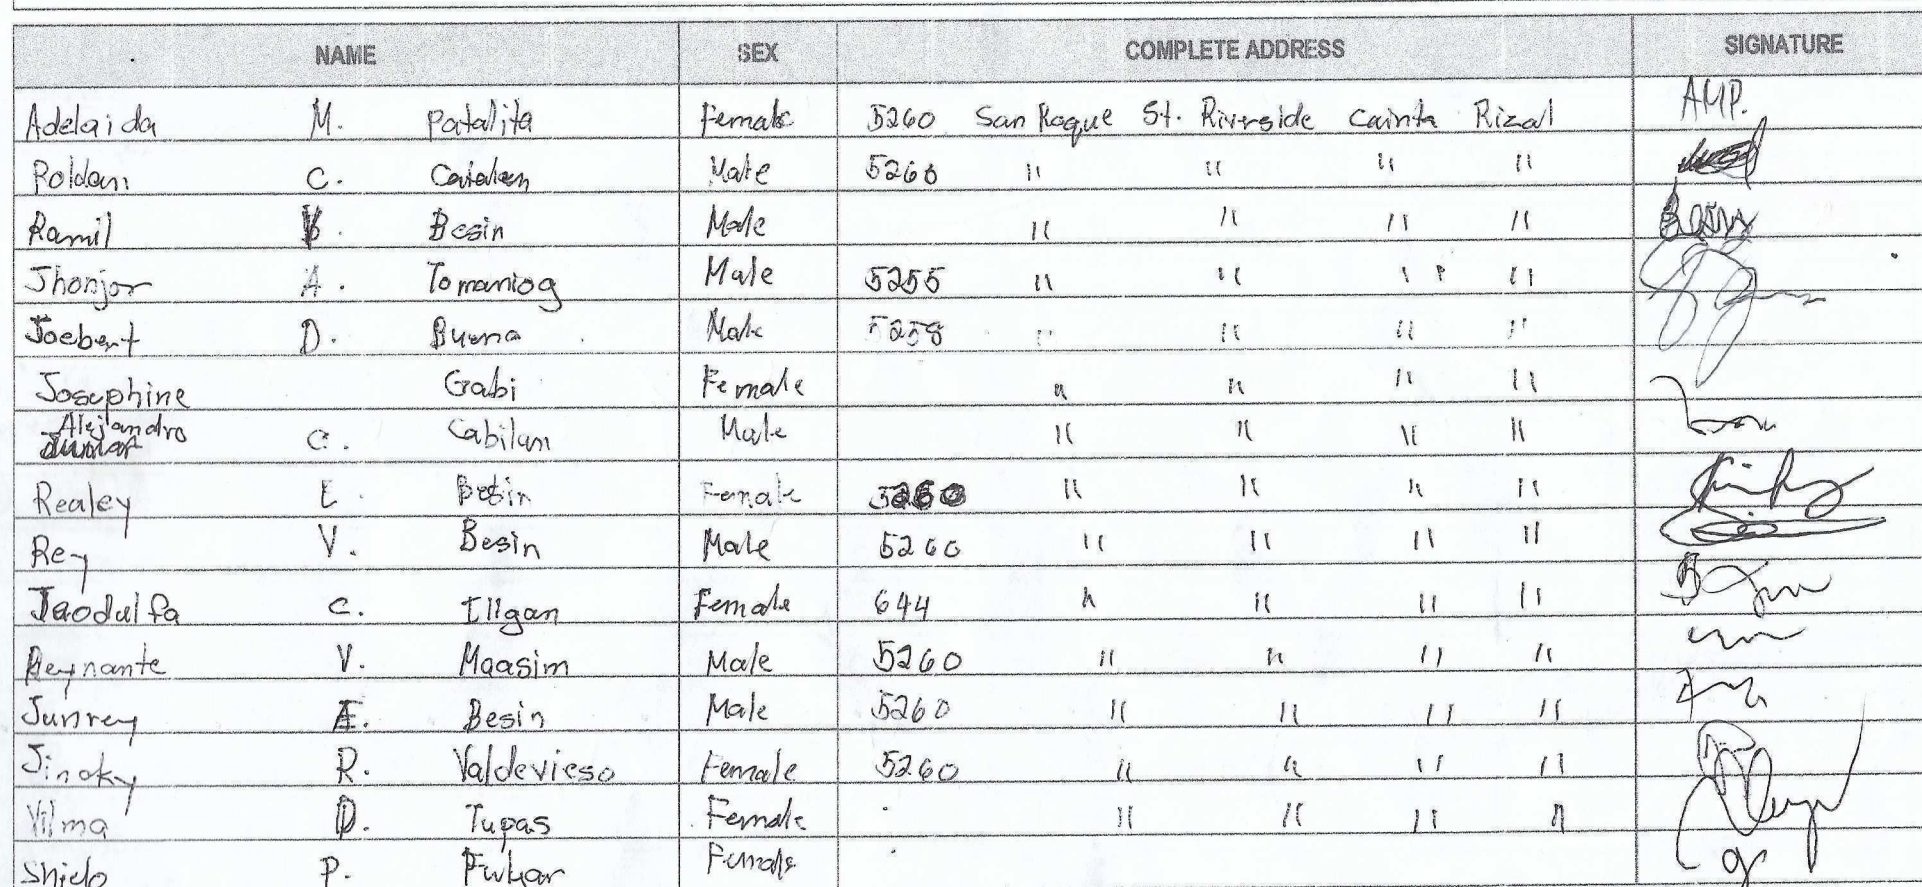 NAME SEX COMPLETE ADDRESS SIGNATURE
Adelaida M. Patalita Female 5260 San Roque St. Riverside Cainta Rizal AMP.
Roldan C. Catalan Male 5260 " " " "
Ramil Besin Male " " " "
Jhonjor A. Tomaniog Male 5255 " " " "
Joebert D. Buena Male 5258 " " " "
Josephine Gabi Female " " " "
Alejandro C. Cabilan Male " " " "
Realey E. Besin Female 5260 " " " "
Rey V. Besin Male 5260 " " " "
C. Illgan Female 644 " " " "
Reynante V. Maasim Male 5260 " " " "
Junrey E. Besin Male 5260 " " " "
Jinoky R. Valdevieso Female 5260 " " " "
Vilma D. Tupas Female " " " "
P. Female